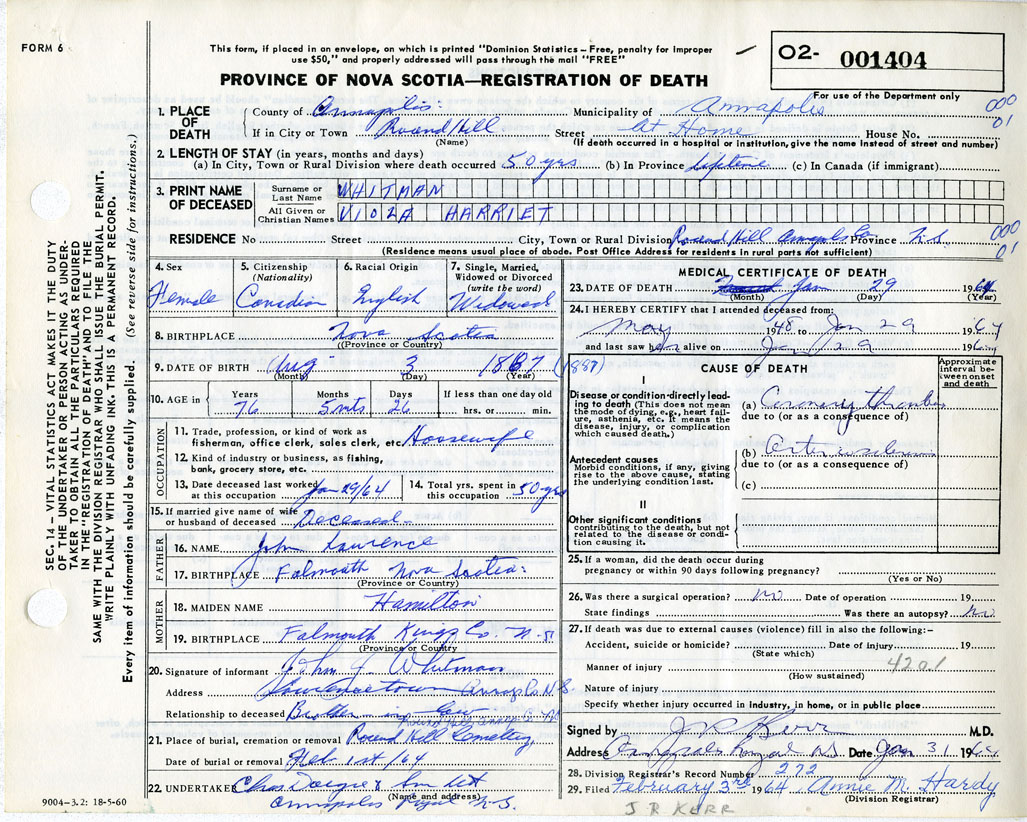 FORM 6
This form, if placed in an envelope, on which is printed "Dominion Statistics – Free, penalty for improper
use $50," and properly addressed will pass through the mail "FREE"
O2- 001404
PROVINCE OF NOVA SCOTIA—REGISTRATION OF DEATH
For use of the Department only
1. PLACE OF DEATH
County of Annapolis: Municipality of Annapolis 000
If in City or Town Round Hill Street At Home House No. 01
(Name) (If death occurred in a hospital or institution, give the name instead of street and number)
2. LENGTH OF STAY (in years, months and days)
(a) In City, Town or Rural Division where death occurred 50 yrs (b) In Province lifetime (c) In Canada (if immigrant)
3. PRINT NAME OF DECEASED
Surname or Last Name WHITMAN
All Given or Christian Names VIOLA HARRIET
RESIDENCE No Street City, Town or Rural Division Round Hill Annapolis Co Province N.S. 000
(Residence means usual place of abode. Post Office Address for residents in rural parts not sufficient) 01
4. Sex Female
5. Citizenship (Nationality) Canadian
6. Racial Origin English
7. Single, Married, Widowed or Divorced (write the word) Widowed
8. BIRTHPLACE Nova Scotia
(Province or Country)
9. DATE OF BIRTH Aug 3 1887 (1887)
(Month) (Day) (Year)
10. AGE in Years 76 Months 5 mts Days 26 If less than one day old hrs. or min.
OCCUPATION
11. Trade, profession, or kind of work as
fisherman, office clerk, sales clerk, etc. Housewife
12. Kind of industry or business, as fishing,
bank, grocery store, etc.
13. Date deceased last worked at this occupation Jan 29/64
14. Total yrs. spent in this occupation 50 yrs
15. If married give name of wife
or husband of deceased Deceased
FATHER
16. NAME John Lawrence
17. BIRTHPLACE Falmouth Nova Scotia:
(Province or Country)
MOTHER
18. MAIDEN NAME Hamilton
19. BIRTHPLACE Falmouth Kings Co. N.S.
(Province or Country)
20. Signature of informant John J Whitman
Address Lawrencetown Annap Co N.S.
Relationship to deceased Brother in Law
21. Place of burial, cremation or removal Round Hill Cemetery
Date of burial or removal Feb 1st/64
22. UNDERTAKER Chas & Son
(Name and address)
Annapolis Royal N.S.
9004–3.2: 18-5-60
MEDICAL CERTIFICATE OF DEATH
23. DATE OF DEATH Jan 29 1964
(Month) (Day) (Year)
24. I HEREBY CERTIFY that I attended deceased from:
May 1948 to Jan 29 1964
and last saw her alive on Jan 29 1964
CAUSE OF DEATH
Approximate interval between onset and death
I
Disease or condition directly leading to death (This does not mean the mode of dying, e.g., heart failure, asthenia, etc. It means the disease, injury, or complication which caused death.)
(a) Coronary thrombosis
due to (or as a consequence of)
Antecedent causes
Morbid conditions, if any, giving rise to the above cause, stating the underlying condition last.
(b)
due to (or as a consequence of)
(c)
II
Other significant conditions
contributing to the death, but not related to the disease or condition causing it.
25. If a woman, did the death occur during
pregnancy or within 90 days following pregnancy?
(Yes or No)
26. Was there a surgical operation? no Date of operation 19
State findings Was there an autopsy? no
27. If death was due to external causes (violence) fill in also the following:–
Accident, suicide or homicide? Date of injury 19
(State which)
4201
Manner of injury
(How sustained)
Nature of injury
Specify whether injury occurred in industry, in home, or in public place
Signed by J R Kerr M.D.
Address Annapolis Royal NS Date Jan 31 1964
28. Division Registrar's Record Number 272
29. Filed February 3rd 1964 Annie M. Hardy
(Division Registrar)
J R KERR
SEC. 14 – VITAL STATISTICS ACT MAKES IT THE DUTY
OF THE UNDERTAKER OR PERSON ACTING AS UNDER-
TAKER TO OBTAIN ALL THE PARTICULARS REQUIRED
IN THE "REGISTRATION OF DEATH" AND TO FILE THE
SAME WITH THE DIVISION REGISTRAR WHO SHALL ISSUE THE BURIAL PERMIT.
WRITE PLAINLY WITH UNFADING INK. THIS IS A PERMANENT RECORD.
Every item of information should be carefully supplied. (See reverse side for instructions.)